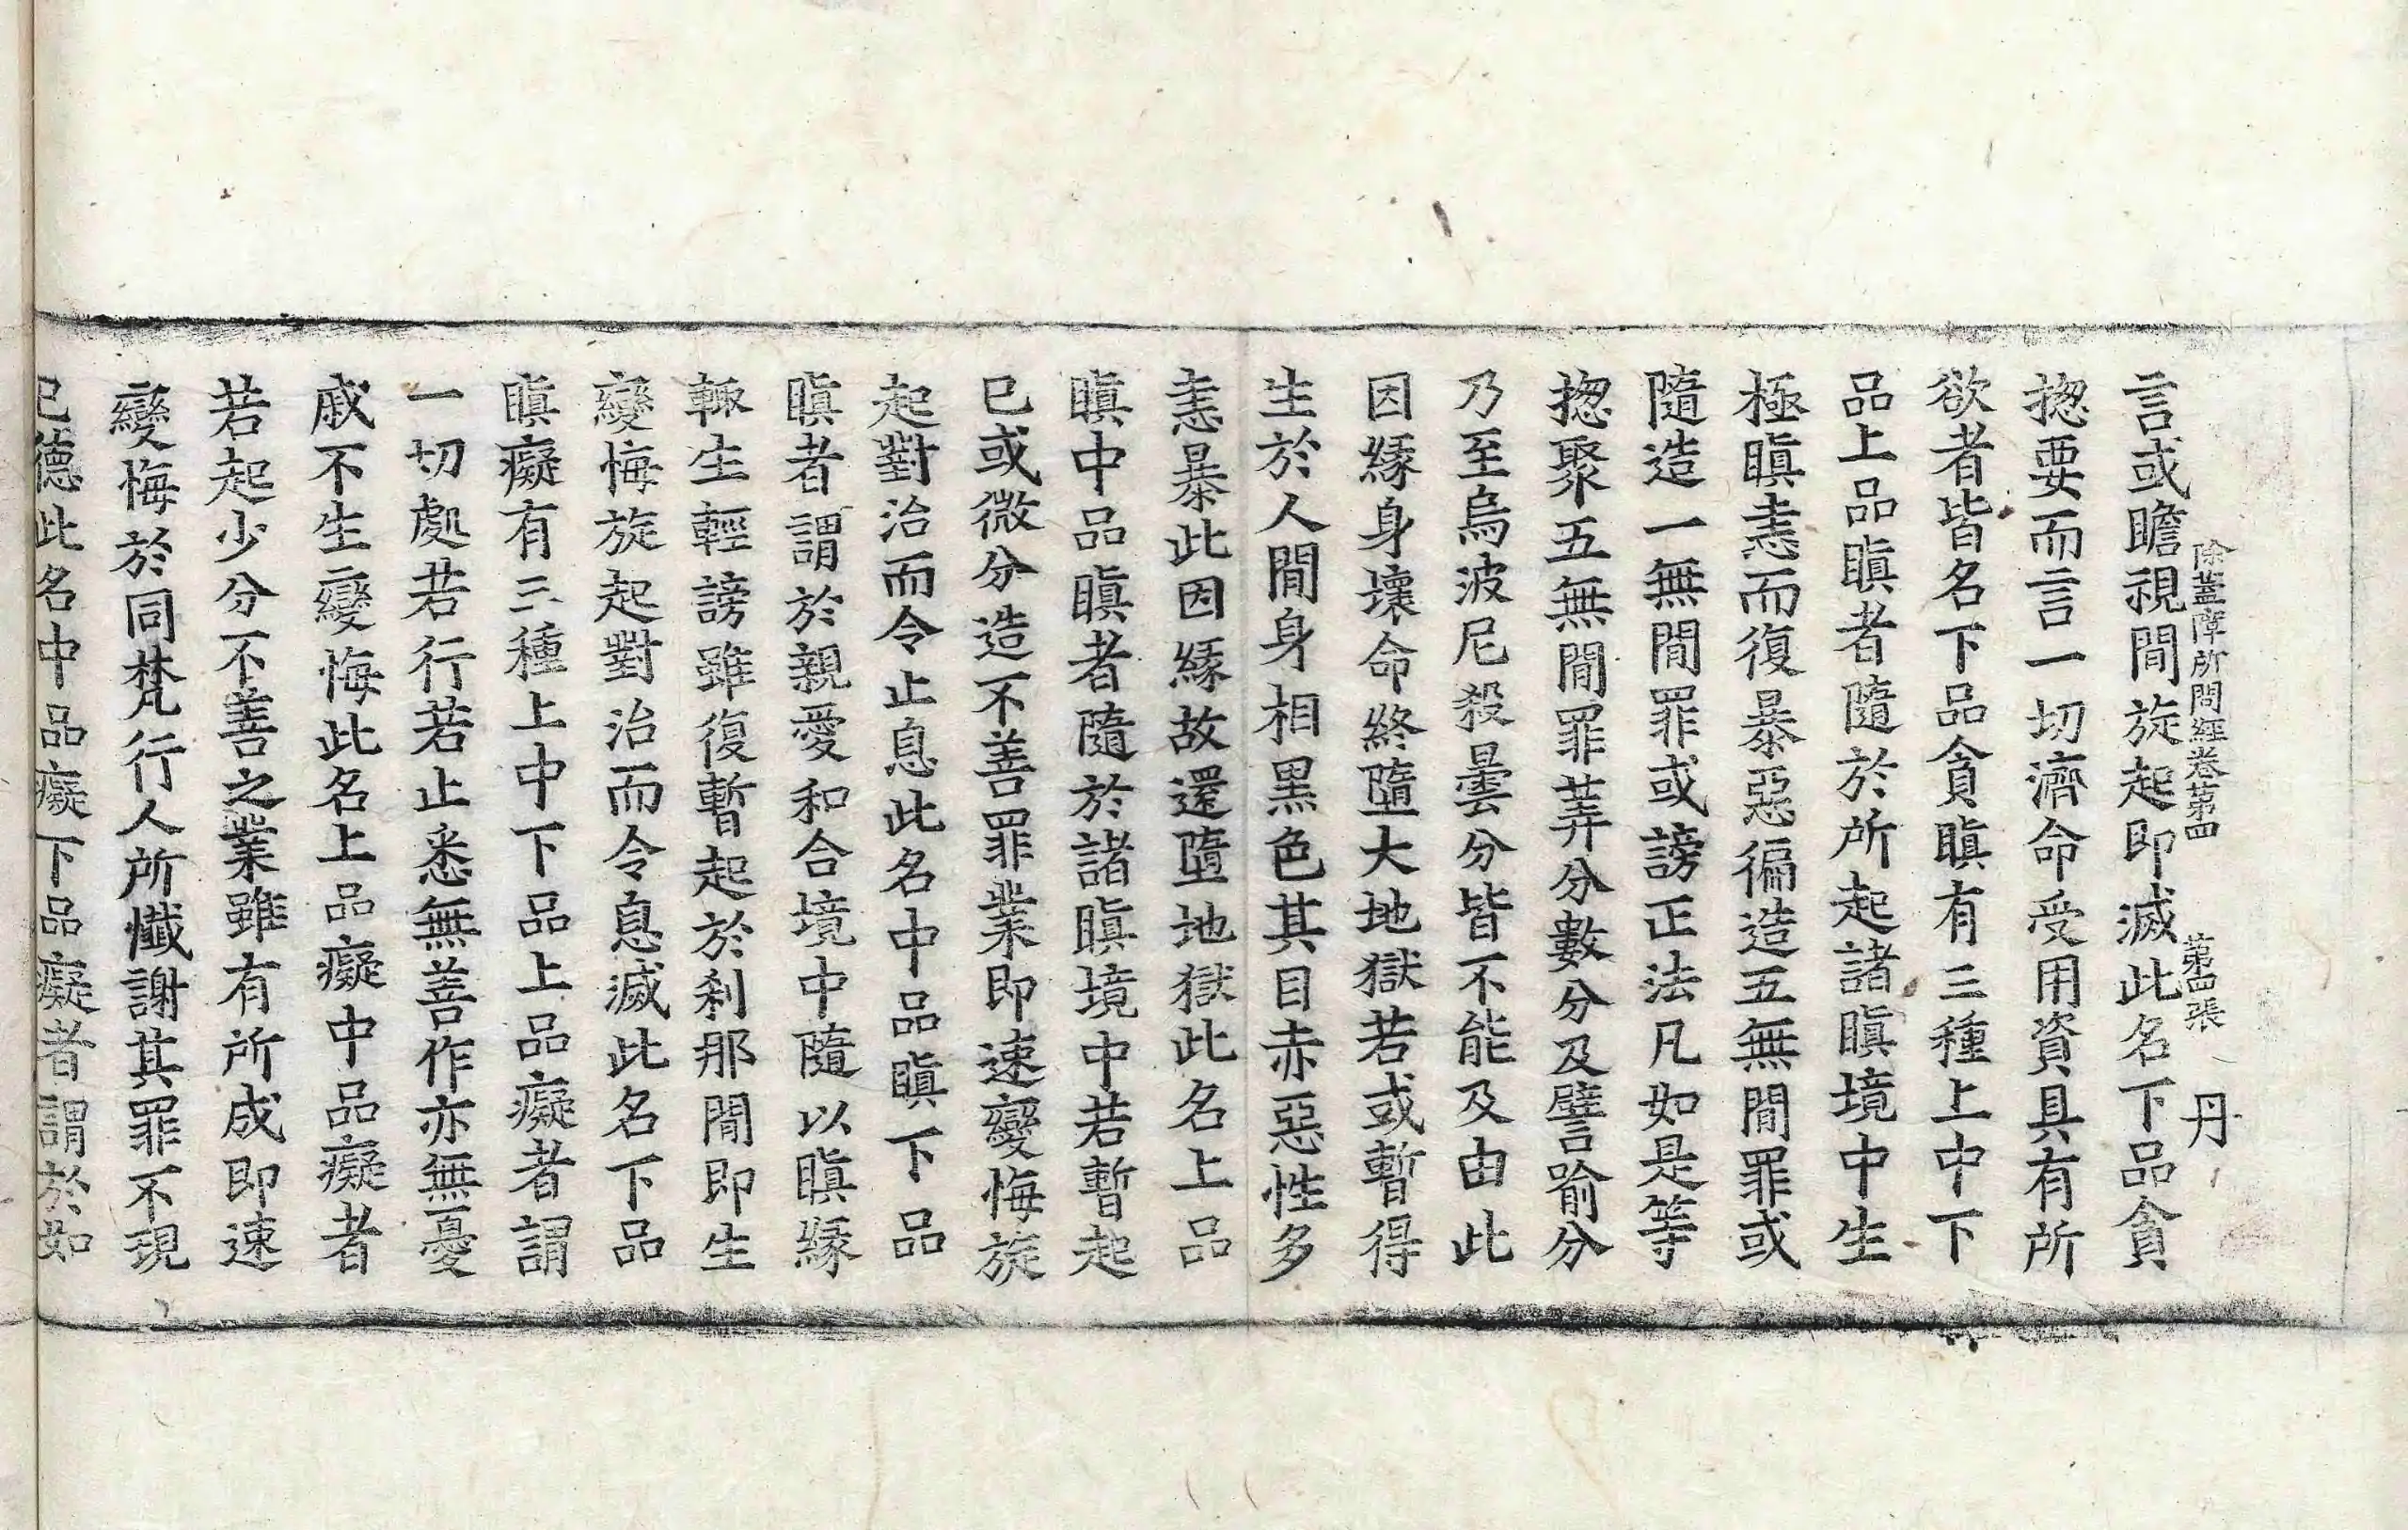 除蓋障所問經卷第四 第四張 丹
言或瞻視閒旋起即滅此名下品貪
揔要而言一切濟命受用資具有所
欲者皆名下品貪瞋有三種上中下
品上品瞋者隨於所起諸瞋境中生
極瞋恚而復暴惡徧造五無閒罪或
隨造一無閒罪或謗正法凡如是等
揔聚五無閒罪筭分數分及譬喻分
乃至烏波尼殺曇分皆不能及由此
因緣身壞命終墮大地獄若或暫得
生於人閒身相黑色其目赤惡性多
恚暴此因緣故還墮地獄此名上品
瞋中品瞋者隨於諸瞋境中若暫起
已或微分造不善罪業即速變悔旋
起對治而令止息此名中品瞋下品
瞋者謂於親愛和合境中隨以瞋緣
輙生輕謗雖復暫起於刹那閒即生
變悔旋起對治而令息滅此名下品
瞋癡有三種上中下品上品癡者謂
一切處若行若止悉無善作亦無憂
戚不生變悔此名上品癡中品癡者
若起少分不善之業雖有所成即速
變悔於同梵行人所懺謝其罪不現
已德此名中品癡下品癡者謂於如